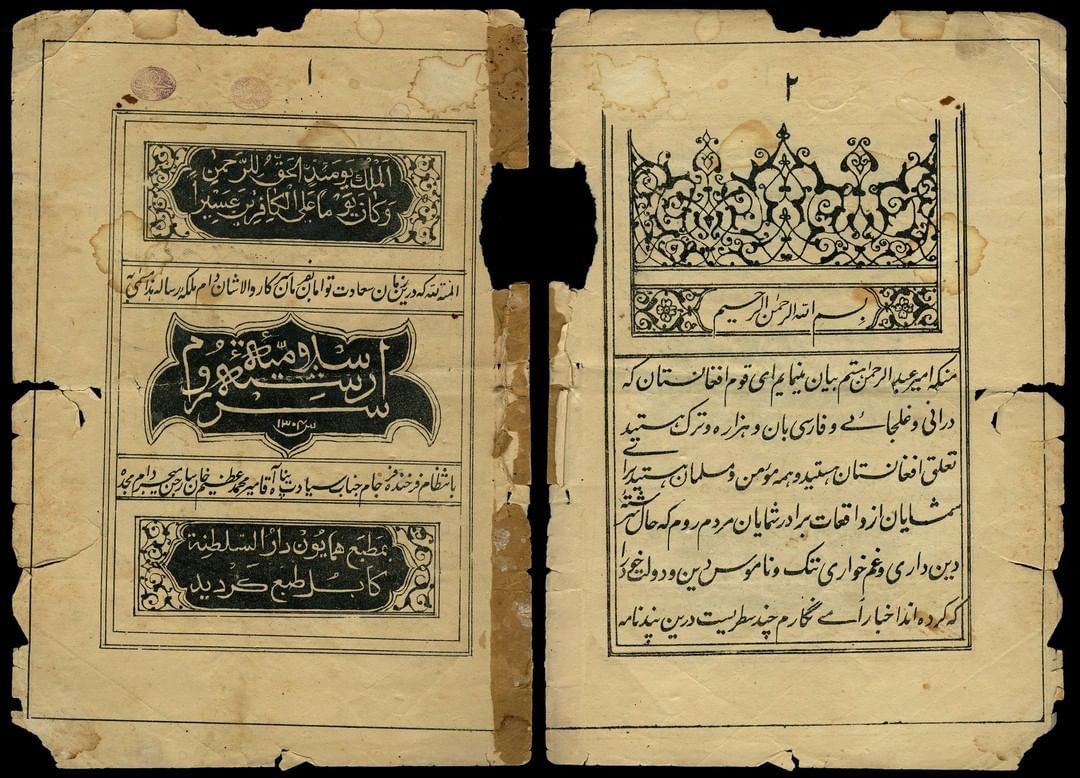 ١
الملك يومئذ الحق للرحمن
وكان يوما على الكافرين عسيرا
المنة لله که درین زمان سعادت توامان بفرمان کار والاشان دام ملکه رساله هذا مسمی به
سنه ۱۳۰۳
بانتظام فرخنده فرجام جناب سیادت پناه آقا میر محمد عظیم خان سارجن میجر دام مجده
بمطبع همایون دار السلطنة
کابل طبع گردید
٢
بسم الله الرحمن الرحیم
منکه امیر عبدالرحمن هستم بیان مینمایم ای قوم افغانستان که
درانی و غلجائے و فارسی بان و هزاره و ترک هستید
تعلق افغانستان هستید و همه مؤمن و مسلمان هستید برائے
شمایان از واقعات برادر شمایان مردم روم که حال گذشته
دین داری و غم خواری ننگ و ناموس دین و دولت خود را
که کرده اند اخبارأے نگارم چند سطریست درین پندنامه